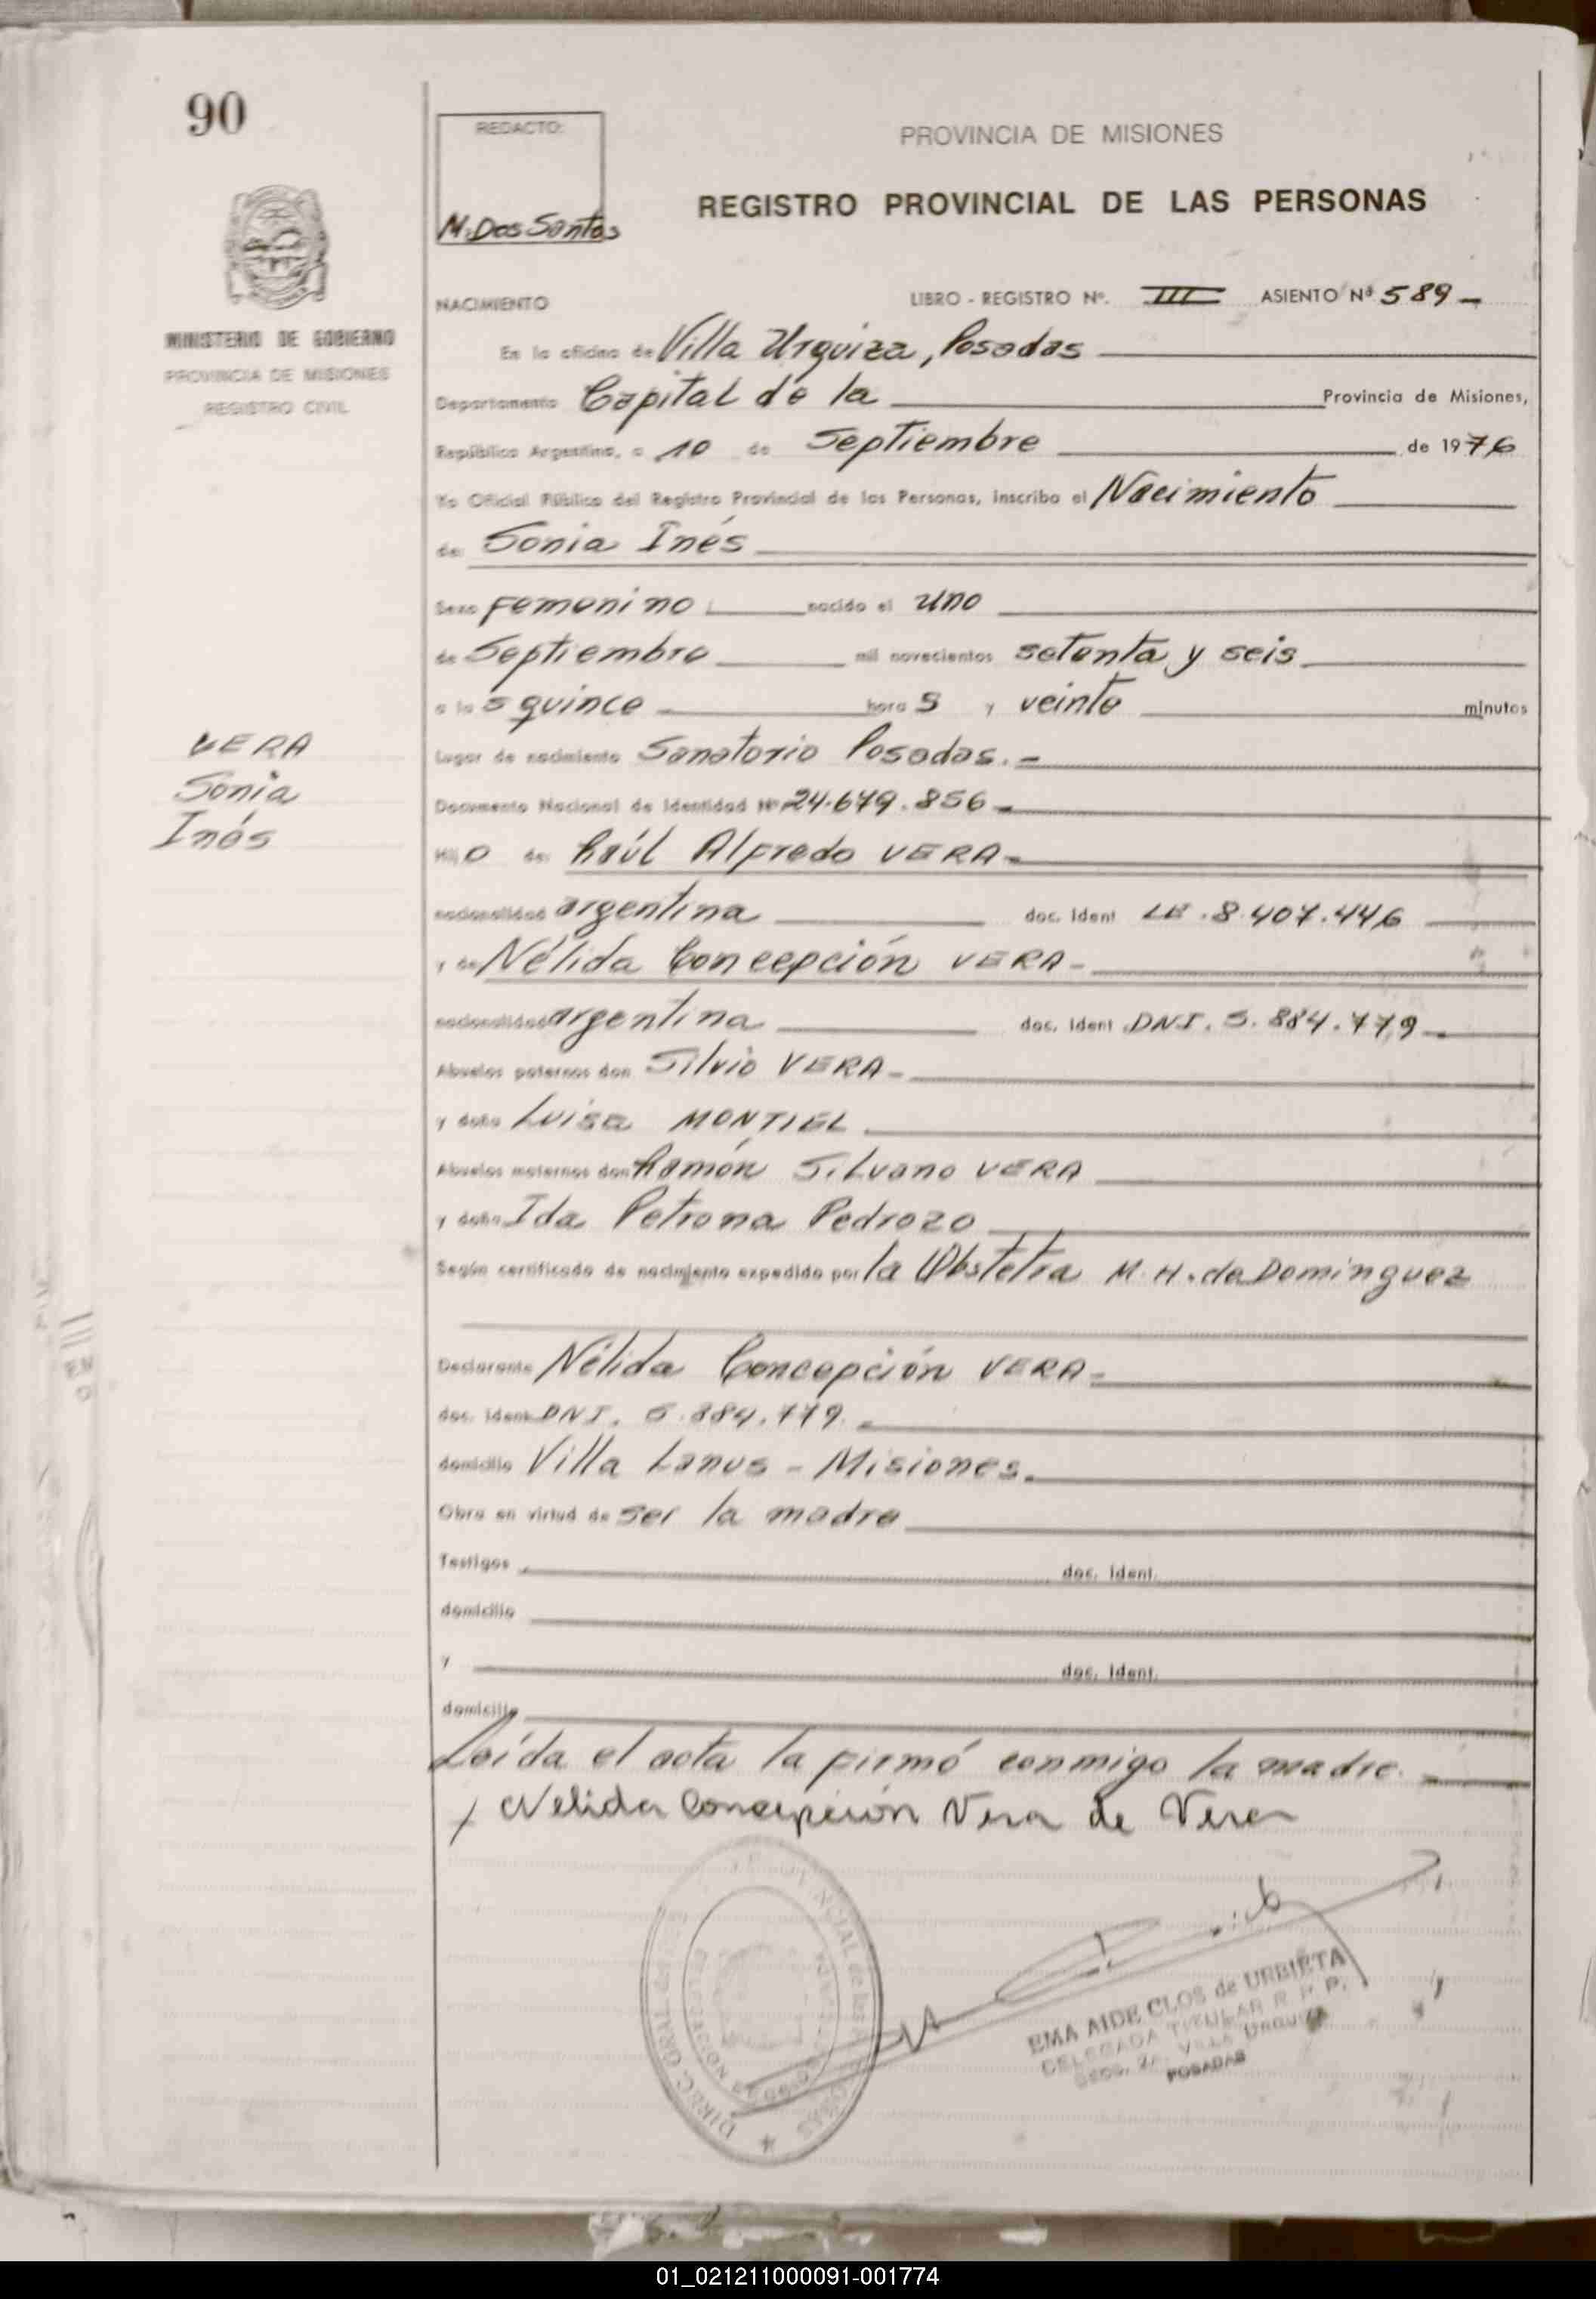 90
REDACTO:
M. Dos Santos
PROVINCIA DE MISIONES
REGISTRO PROVINCIAL DE LAS PERSONAS
MINISTERIO DE GOBIERNO
PROVINCIA DE MISIONES
REGISTRO CIVIL
NACIMIENTO LIBRO - REGISTRO Nº. III ASIENTO Nº 589 -
En la oficina de Villa Urquiza, Posadas
Departamento Capital de la Provincia de Misiones,
República Argentina, a 10 de Septiembre de 1976
Yo Oficial Público del Registro Provincial de las Personas, inscribo el Nacimiento
de: Sonia Inés
Sexo Femenino nacido el uno
de Septiembre mil novecientos setenta y seis
a las quince horas y veinte minutos
VERA
Sonia
Inés
Lugar de nacimiento Sanatorio Posadas. -
Documento Nacional de Identidad Nº 24.679.856 -
Hijo de: Raúl Alfredo VERA -
nacionalidad argentina doc. ident LE. 8.407.446
y de Nélida Concepción VERA -
nacionalidad argentina doc. ident DNI. 5.884.779 -
Abuelos paternos don Silvio VERA -
y doña Luisa MONTIEL
Abuelos maternos don Ramón Silvano VERA
y doña Ida Petrona Pedrozo
Según certificado de nacimiento expedido por la Obstetra M. H. de Dominguez
Declarante Nélida Concepción VERA -
doc. ident DNI. 5.884.779. -
domicilio Villa Lanus - Misiones.
Obra en virtud de ser la madre
Testigos doc. ident.
domicilio
y doc. ident.
domicilio
Leída el acta la firmó conmigo la madre. -
Nelida Concepción Vera de Vera
EMA AIDE CLOS de URBIETA
DELEGADA TITULAR R. P. P.
SECC. 2a. VILLA URQUIZA
POSADAS
01_021211000091-001774